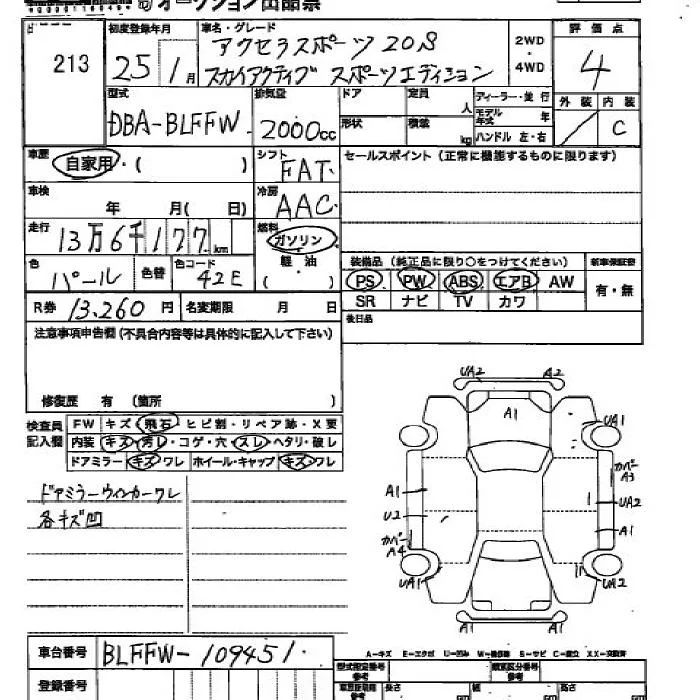 オークション出品票
213
初度登録年月
25年1月
車名・グレード
アクセラスポーツ 20S
スカイアクティブ スポーツエディション
2WD
・
4WD
評価点
4
型式
DBA-BLFFW
排気量
2000cc
ドア
定員
人
形状
積載
kg
ディーラー・並行
モデル年式 年
ハンドル 左・右
外装 内装
C
車歴
自家用・( )
シフト
FAT
セールスポイント (正常に機能するものに限ります)
車検
年 月( 日)
冷房
AAC
走行
13万6千177km
燃料
ガソリン
軽油
( ・ )
色
パール
色替
色コード
42E
装備品 (純正品に限り○をつけてください)
新車保証書
PS PW ABS エアB AW
有・無
SR ナビ TV カワ
R券 13,260円
名変期限 月 日
後日品
注意事項申告欄 (不具合内容等は具体的に記入して下さい)
修復歴 有 (箇所 )
検査員記入欄
FW キズ・飛石・ヒビ割・リペア跡・X要
内装 キズ・汚レ・コゲ・穴・スレ・ヘタリ・破レ
ドアミラー キズ・ワレ ホイール・キャップ キズ・ワレ
ドアミラーウィンカーワレ
各キズ凹
UA2 A2
A1
UA1
カバーA3
A1
UA2
U2
A1
カバーA4
UA1
UA2
A1
A1
A-キズ E-エクボ U-凹み W-補修跡 S-サビ C-腐立 XX-交換済
車台番号 BLFFW-109451
登録番号
型式指定番号
参考
類別区分番号
参考
長さ
幅
高さ